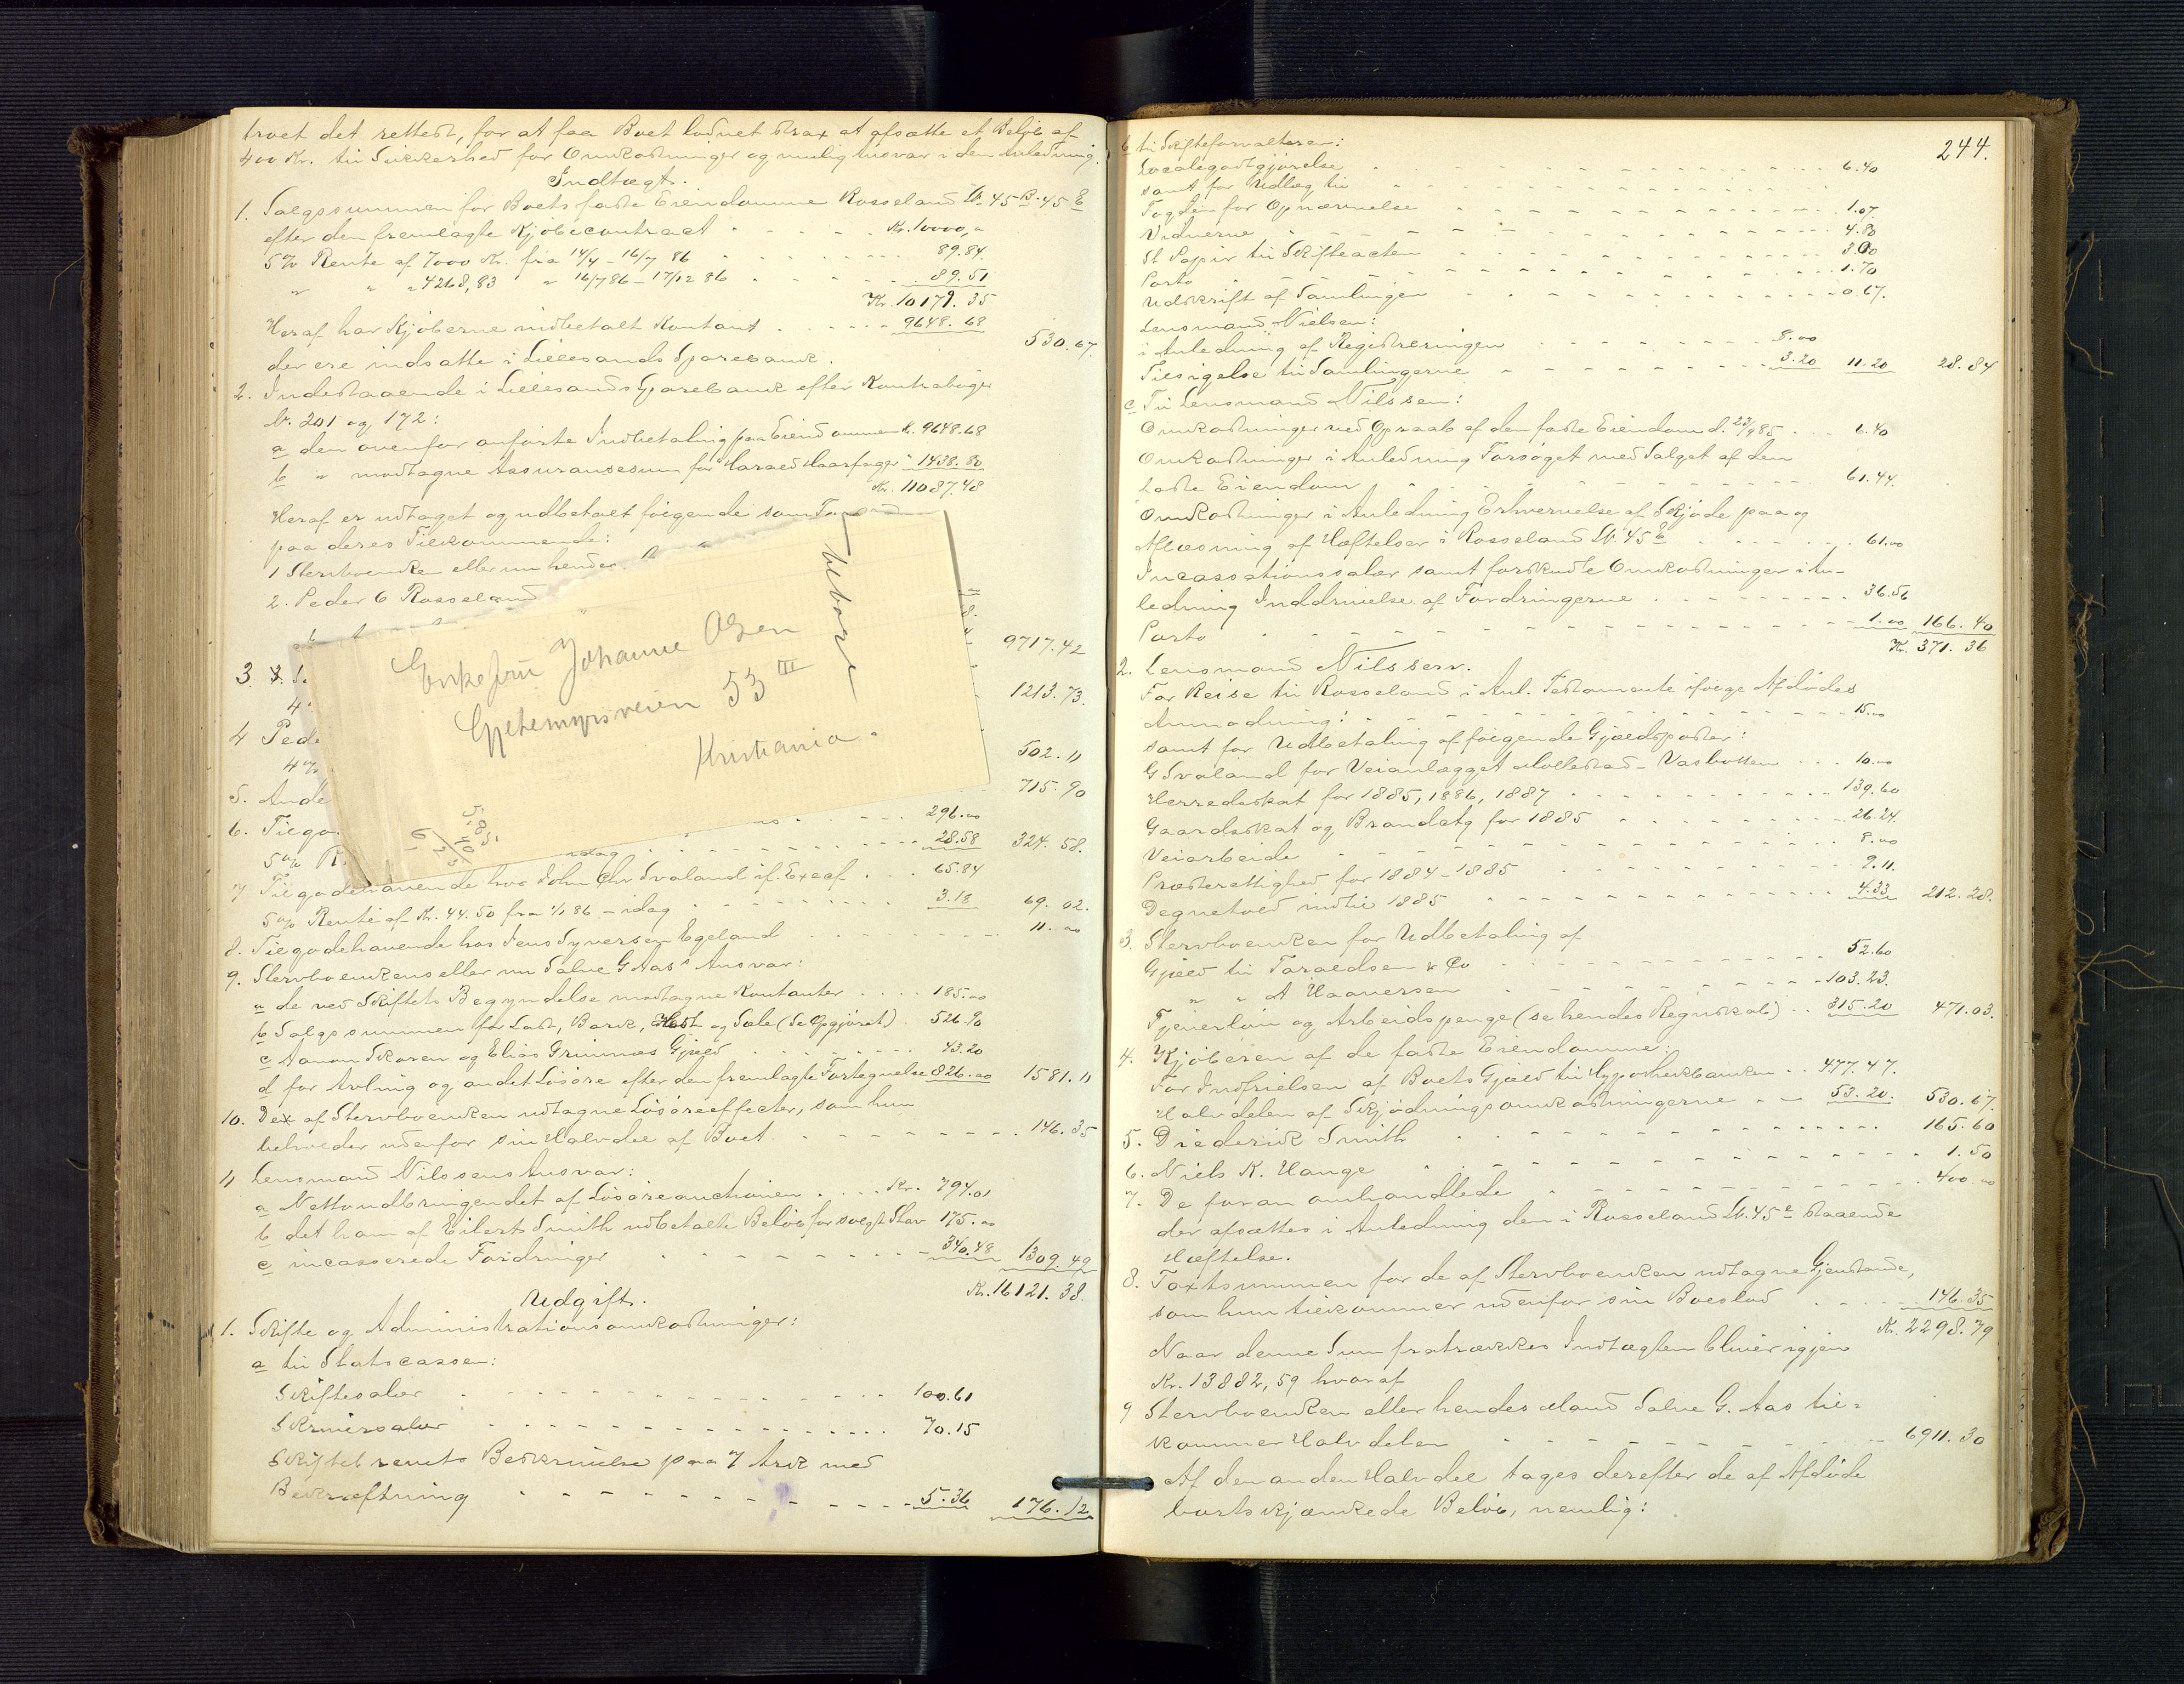 troet det rettest, for at faa Boet sluttet strax at afsætte et Beløb af
400 Kr. til Sikkerhed for Omkostninger og mulig Ansvar i den Anledning.
Indtægt.
1. Salgssummen for Boets faste Eiendomme Rosseland Lb. 45 B. 45 E
efter den fremlagte Kjøbecontract . . . . Kr. 10000,"
5% Rente af 7000 Kr. fra 14/4 - 16/7 86 . . . 89.84
" " " 4268,83 " 16/7 86 - 17/12 86 . . . 89.51
Kr. 10179.35
Heraf har Kjøberne indbetalt Kontant . . . 9648.68 530.67.
der ere indsatte i Lillesands Sparebank.
2. Indestaaende i Lillesands Sparebank efter Kontrabøger
Lb. 201 og 172:
a den ovenfor anførte Indbetaling paa Eiendommen Kr. 9648.68
b " modtagne Assurancesum for "Harald Haarfager" 1438.80
Kr. 11087.48
Heraf er udtaget og udbetalt følgende som
paa deres Tilkommende:
1 Stervboenken eller nu hendes
2. Peder G Rosseland
9717.42
3.
4% 1213.73.
4 Pede
4% 502.11
5. Ande 715.90
6. Tilgo 296.00
5% R idag . . . 28.58 324.58.
7 Tilgodehavende hos John Chr Svaland if. Execf . . . 65.84
5% Rente af Kr. 44.50 fra 1/1 86 - idag . . . 3.18 69.02.
8. Tilgodehavende hos Jens Syversen Egeland . . . 11.00
9. Stervboenkens eller nu Salve G Aas's Ansvar:
a de ved Skiftets Begyndelse modtagne Kontanter . . . 185.00
b Salgssummen for Last, Bark, Hest og Sæle (se Opgjøret) . 526.90
c Aanon Skaren og Elias Grimnæs Gjæld . . . 43.20
d for Avling og andet Løsøre efter den fremlagte Fortegnelse 826.00 1581.11
10. De af Stervboenken udtagne Løsøreeffecter, som hun
beholder udenfor sin Halvdel af Boet . . . 146.35
11 Lensmand Nilssens Ansvar:
a Nettoudbringendet af Løsøreauctionen . . . Kr. 794.01
b det ham af Eilert Smith udbetalte Beløb for solgt Hav 175.00
c incasserede Fordringer . . . 340.48 1309.49
Kr. 16121.38.
Udgift.
1. Skifte og Administrationsomkostninger:
a til Statscassen:
Skiftesalær . . . 100.61
Skriversalær . . . 70.15
Skiftebrevets Beskrivelse paa 7 Ark med
Bekræftning . . . 5.36 176.12
Enkefru Johanne Olsen
Gjetemyrsveien 53 III
Kristiania.
244.
b til Skifteforvalteren:
Localegodtgjørelse . . . 6.40
samt for Udlæg til
Fogden for Opnævnelse . . . 1.07.
Vidnerne . . . 4.80
St Papir til Skifteacten . . . 3.00
Porto . . . 1.70
Udskrift af Samlingen . . . 0.67.
Lensmand Nielsen:
i Anledning af Registreringen . . . 8.00
Tilsigelse til Samlingerne . . . 3.20 11.20 28.84
c Til Lensmand Nilssen:
Omkostninger ved Opraab af den faste Eiendom d. 23/9 85 . . 6.40
Omkostninger i Anledning Forsøget med Salget af den
faste Eiendom . . . 61.44.
Omkostninger i Anledning Erhvervelse af Skjøde paa og
Aflæsning af Hæftelser i Rosseland Lb. 45 E . . . 61.00
Incassationssalær samt forskudte Omkostninger i An-
ledning Inddrivelse af Fordringerne . . . 36.56
Porto . . . 1.00 166.40
Kr. 371.36
2. Lensmand Nilssen.
For Reise til Rosseland i Anl. Testamente ifølge Afdødes
Anmodning: . . . 15.00
samt for Udbetaling af følgende Gjældsposter:
G Svaland for Veianlægget Mollestad - Vasbotten . . . 10.00
Herredsskat for 1885, 1886, 1887 . . . 139.60
Gaardsskat og Brandctg for 1885 . . . 26.24.
Veiarbeide . . . 8.00
Præsterettighed for 1884-1885 . . . 9.11.
Degnetold indtil 1885 . . . 4.33 212.28.
3. Stervboenken for Udbetaling af
Gjæld til Taraldsen & Co . . . 52.60
" " A Haaversen . . . 103.23.
Tjenerløn og Arbeidspenge (se hendes Regnskab) . . 315.20 471.03.
4. Kjøberen af de faste Eiendomme:
For Indfrielsen af Boets Gjæld til Hypothekbanken . . 477.47.
Halvdelen af Skjødningsomkostningerne . . 53.20. 530.67.
5. Diederik Smith . . . 165.60
6. Niels K. Hauge . . . 1.50
7. De foran omhandlede . . . 400.00
der afsættes i Anledning den i Rosseland Lb. 45 E staaende
Hæftelse.
8. Taxtsummen for de af Stervboenken udtagne Gjenstande,
som hun tilkommer udenfor sin Boeslod . . . 146.35
Kr. 2298.79
Naar denne Sum fratrækkes Indtægten bliver igjen
Kr. 13882,59 hvoraf
9 Stervboenken eller hendes Mand Salve G. Aas til-
kommer Halvdelen . . . 6911.30
Af den anden Halvdel tages derefter de af Afdøde
bortskjænkede Beløb, nemlig: